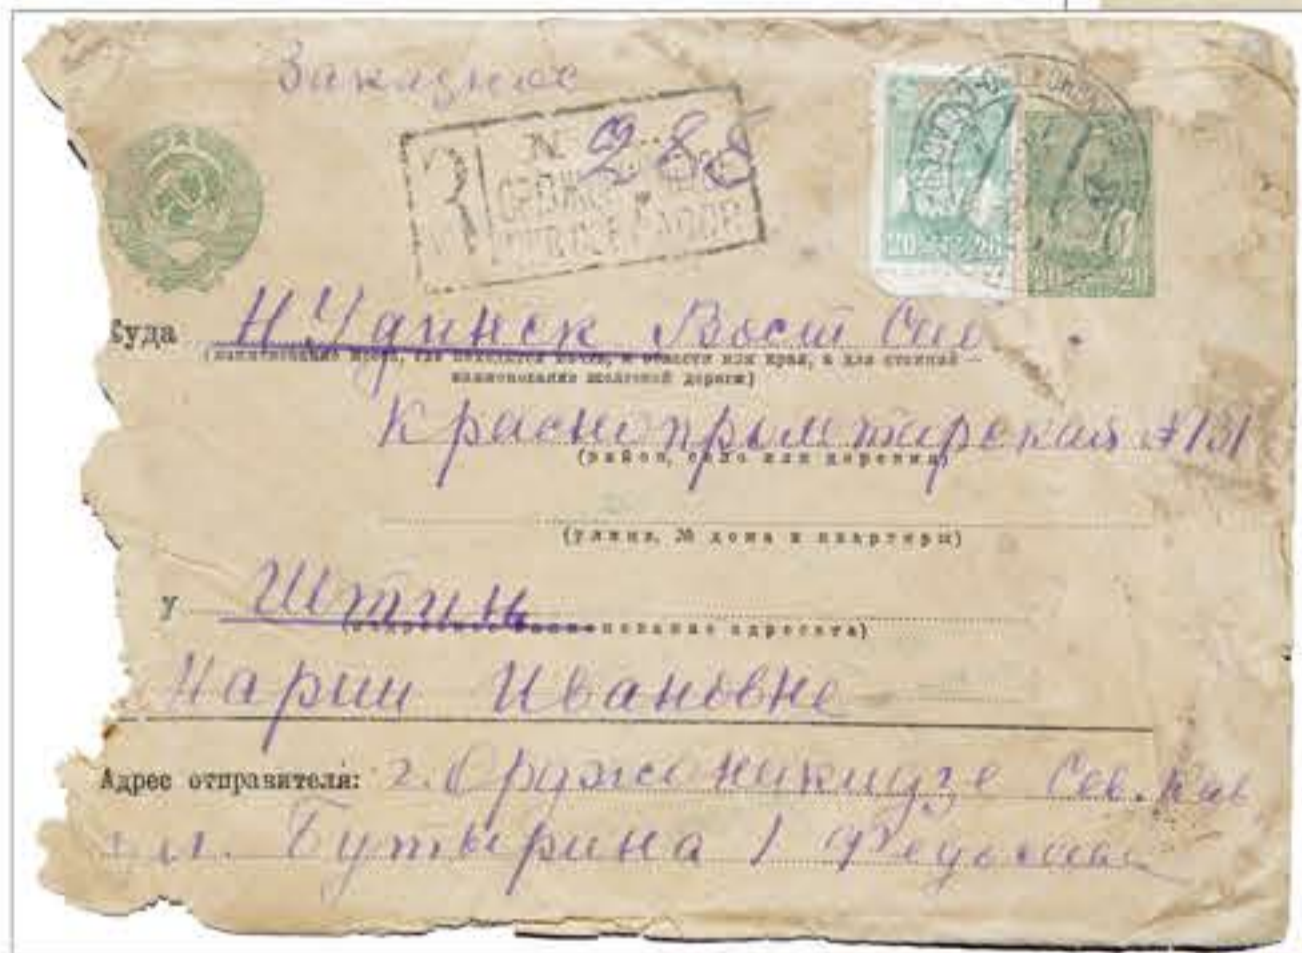 Заказное
З № 288
ОРДЖ
Куда Н Удинск Вост Сиб
(наименование места, где находится почта, и области или края, а для станций
наименование железной дороги)
Краснопрылетарская №131
(район, село или деревня)
(улица, № дома и квартиры)
у Штинь
наименование адресата)
Марии Ивановне
Адрес отправителя: г. Орджоникидзе Сев. Кав
ул. Бутырина 1
20 20
20 20